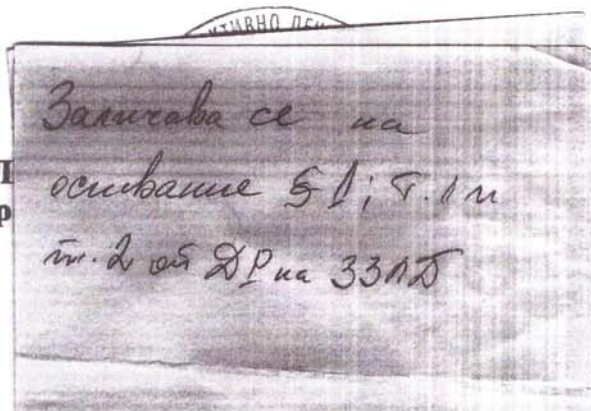 КТИВНО ПЕН
Заличава се на
П
основание § 1; т. 1 и
р
т. 2 от ДР на ЗЗЛД